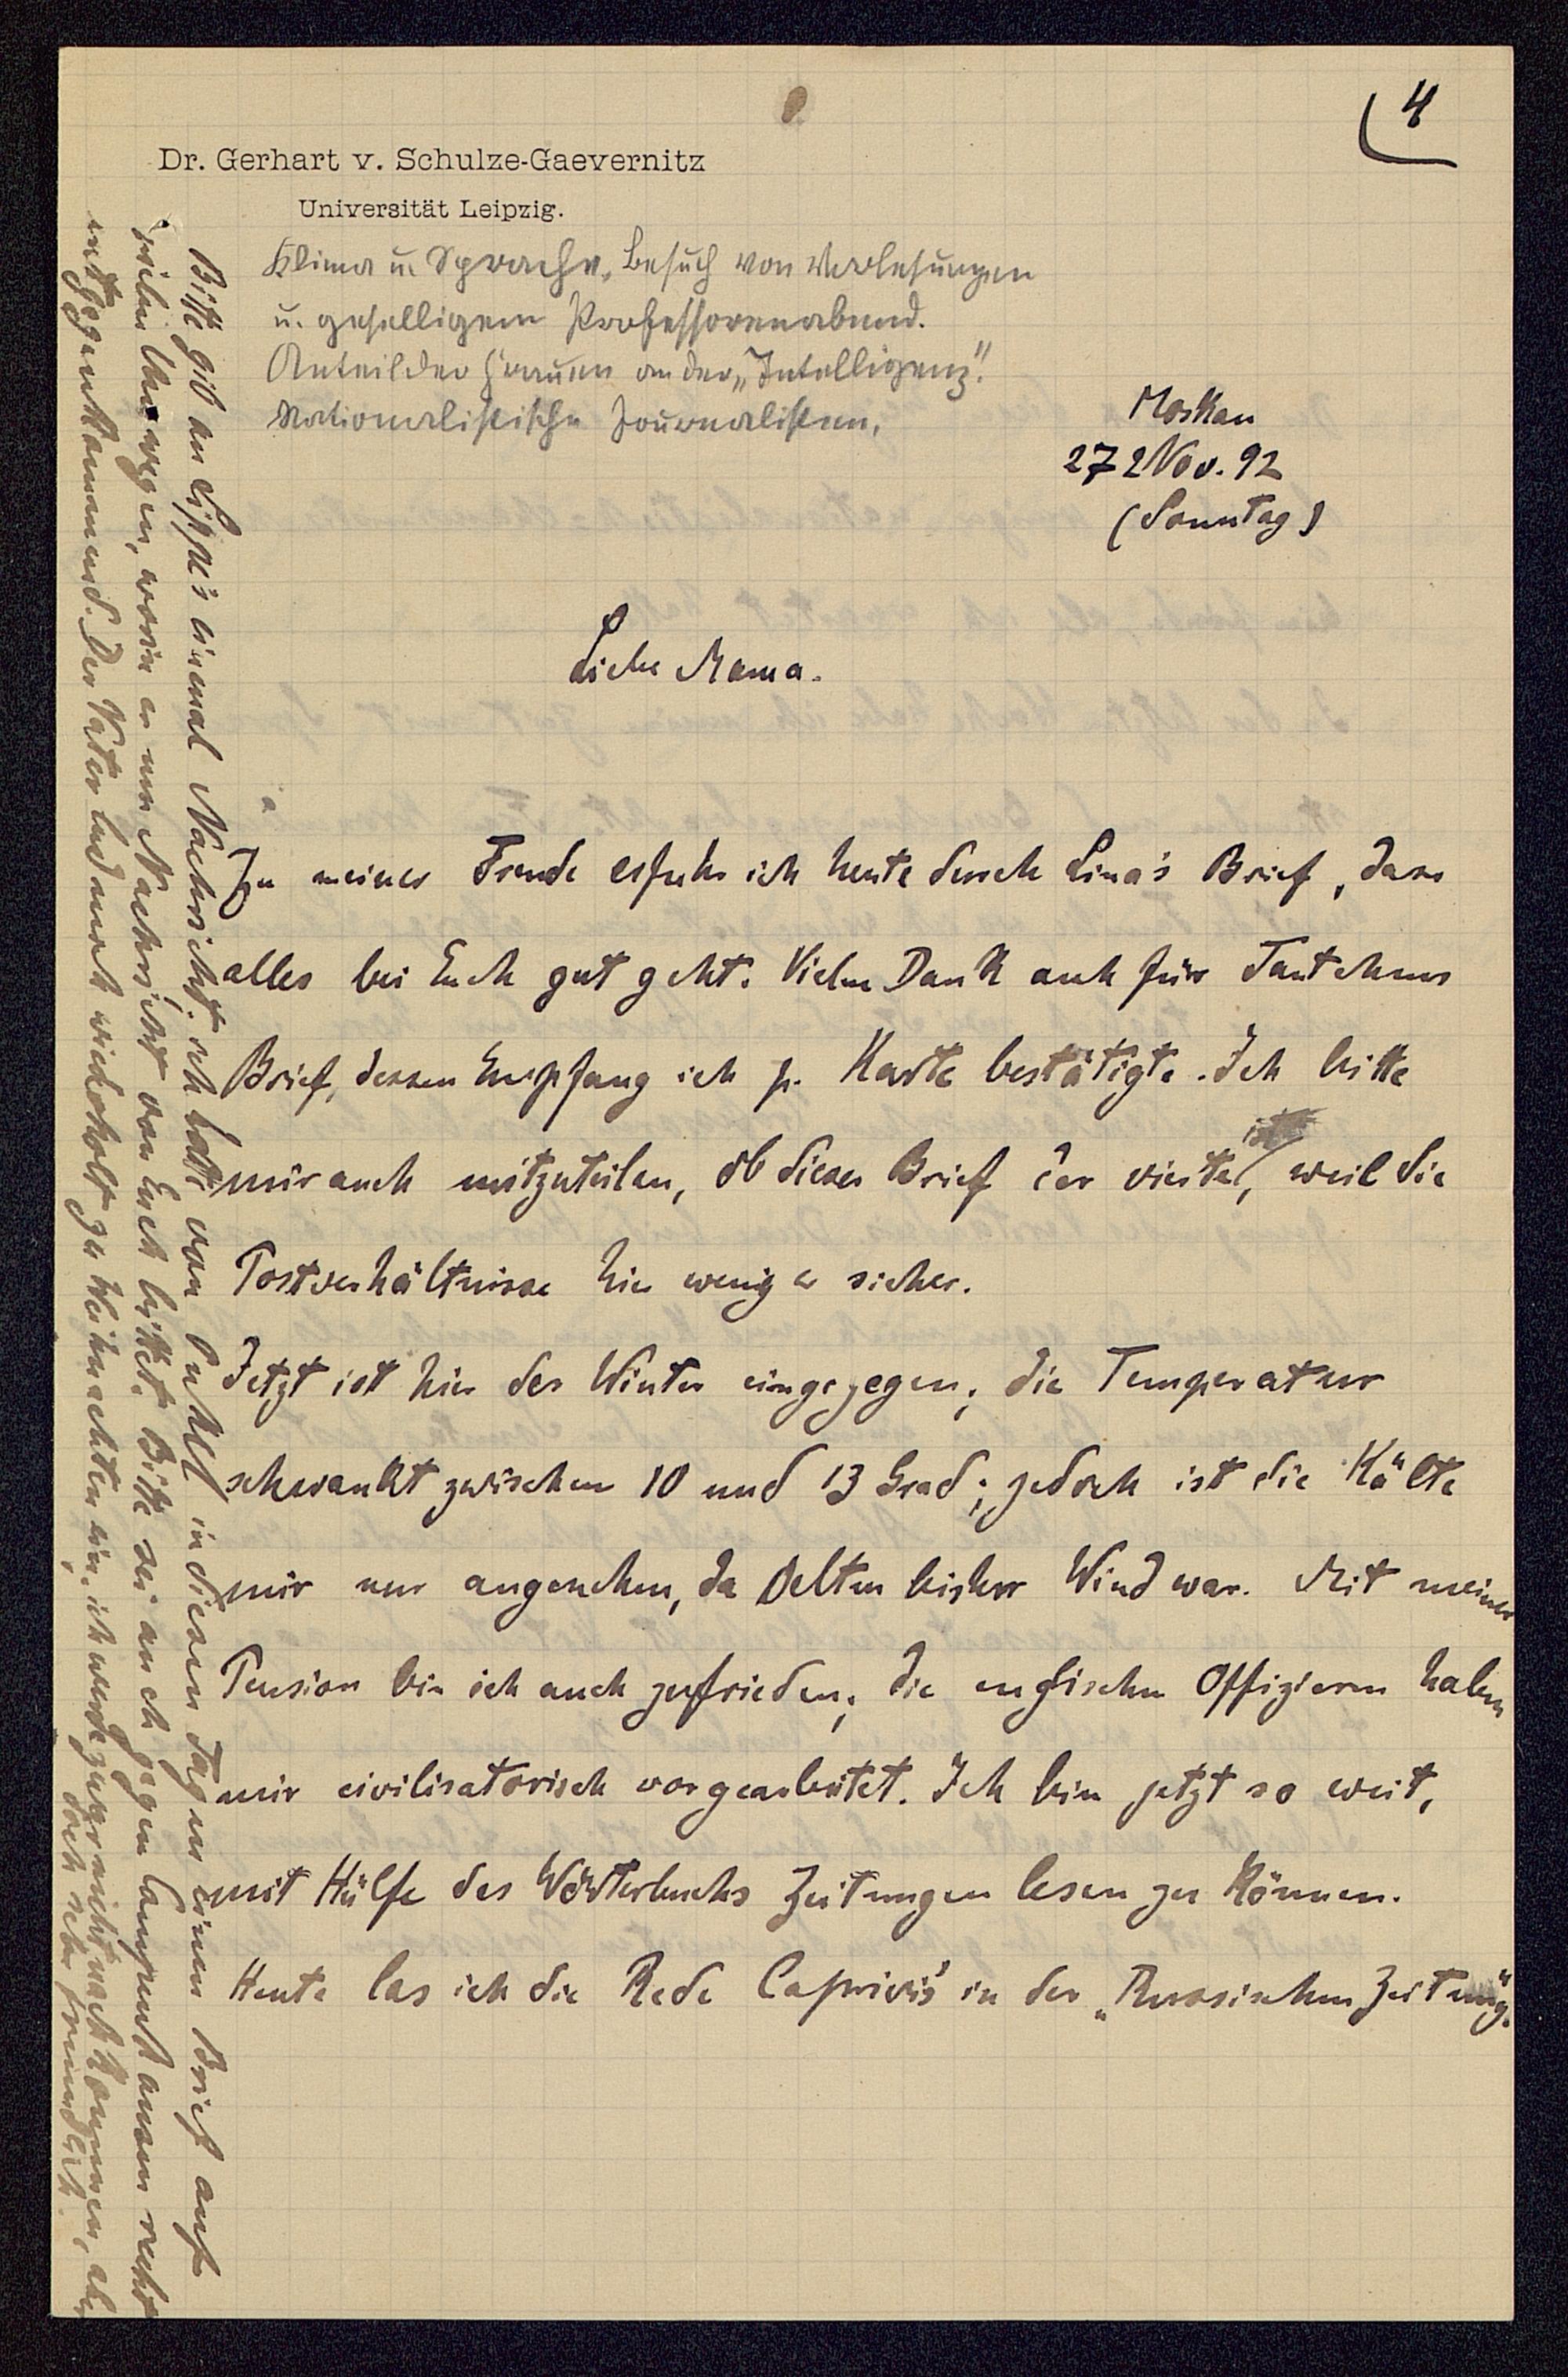 4
Dr. Gerhart v. Schulze-Gaevernitz
Universität Leipzig.
Klima u. Sprache, Besuch von Vorlesungen
u. geselligem Professorenabend.
Anteil der Frauen an der „Intelligenz".
Nationalistische Journalisten.
Moskau
27 Nov. 92
(Sonntag)
Liebe Mama.
Zu meiner Freude erfuhr ich heute durch Lina's Brief, dass
alles bei Euch gut geht. Vielen Dank auch für Tantchens
Brief, dessen Empfang ich p. Karte bestätigte. Ich bitte
mir auch mitzuteilen, ob dieser Brief der vierte ist, weil die
Postverhältnisse hier weniger sicher.
Jetzt ist hier der Winter eingezogen; die Temperatur
schwankt zwischen 10 und 13 Grad; jedoch ist die Kälte
mir nur angenehm, da selten bisher Wind war. Mit meiner
Pension bin ich auch zufrieden; die englischen Offiziere haben
mir civilisatorisch vorgearbeitet. Ich bin jetzt so weit,
mit Hülfe des Wörterbuchs Zeitungen lesen zu können.
Heute las ich die Rede Caprivis' in der „Russischen Zeitung".
Bitte gib an Lippe's einmal Nachricht. ich hatte von in diesen Tagen einen Brief auf
worin er um Nachricht von Euch bittet. Bitte sei auch gegen Campenhausen recht
entgegenkommend. Der Vater lud mich wiederholt zu Weihnachten ein; ich werde zwar nicht nachkommen, aber
doch sehr freundlich.